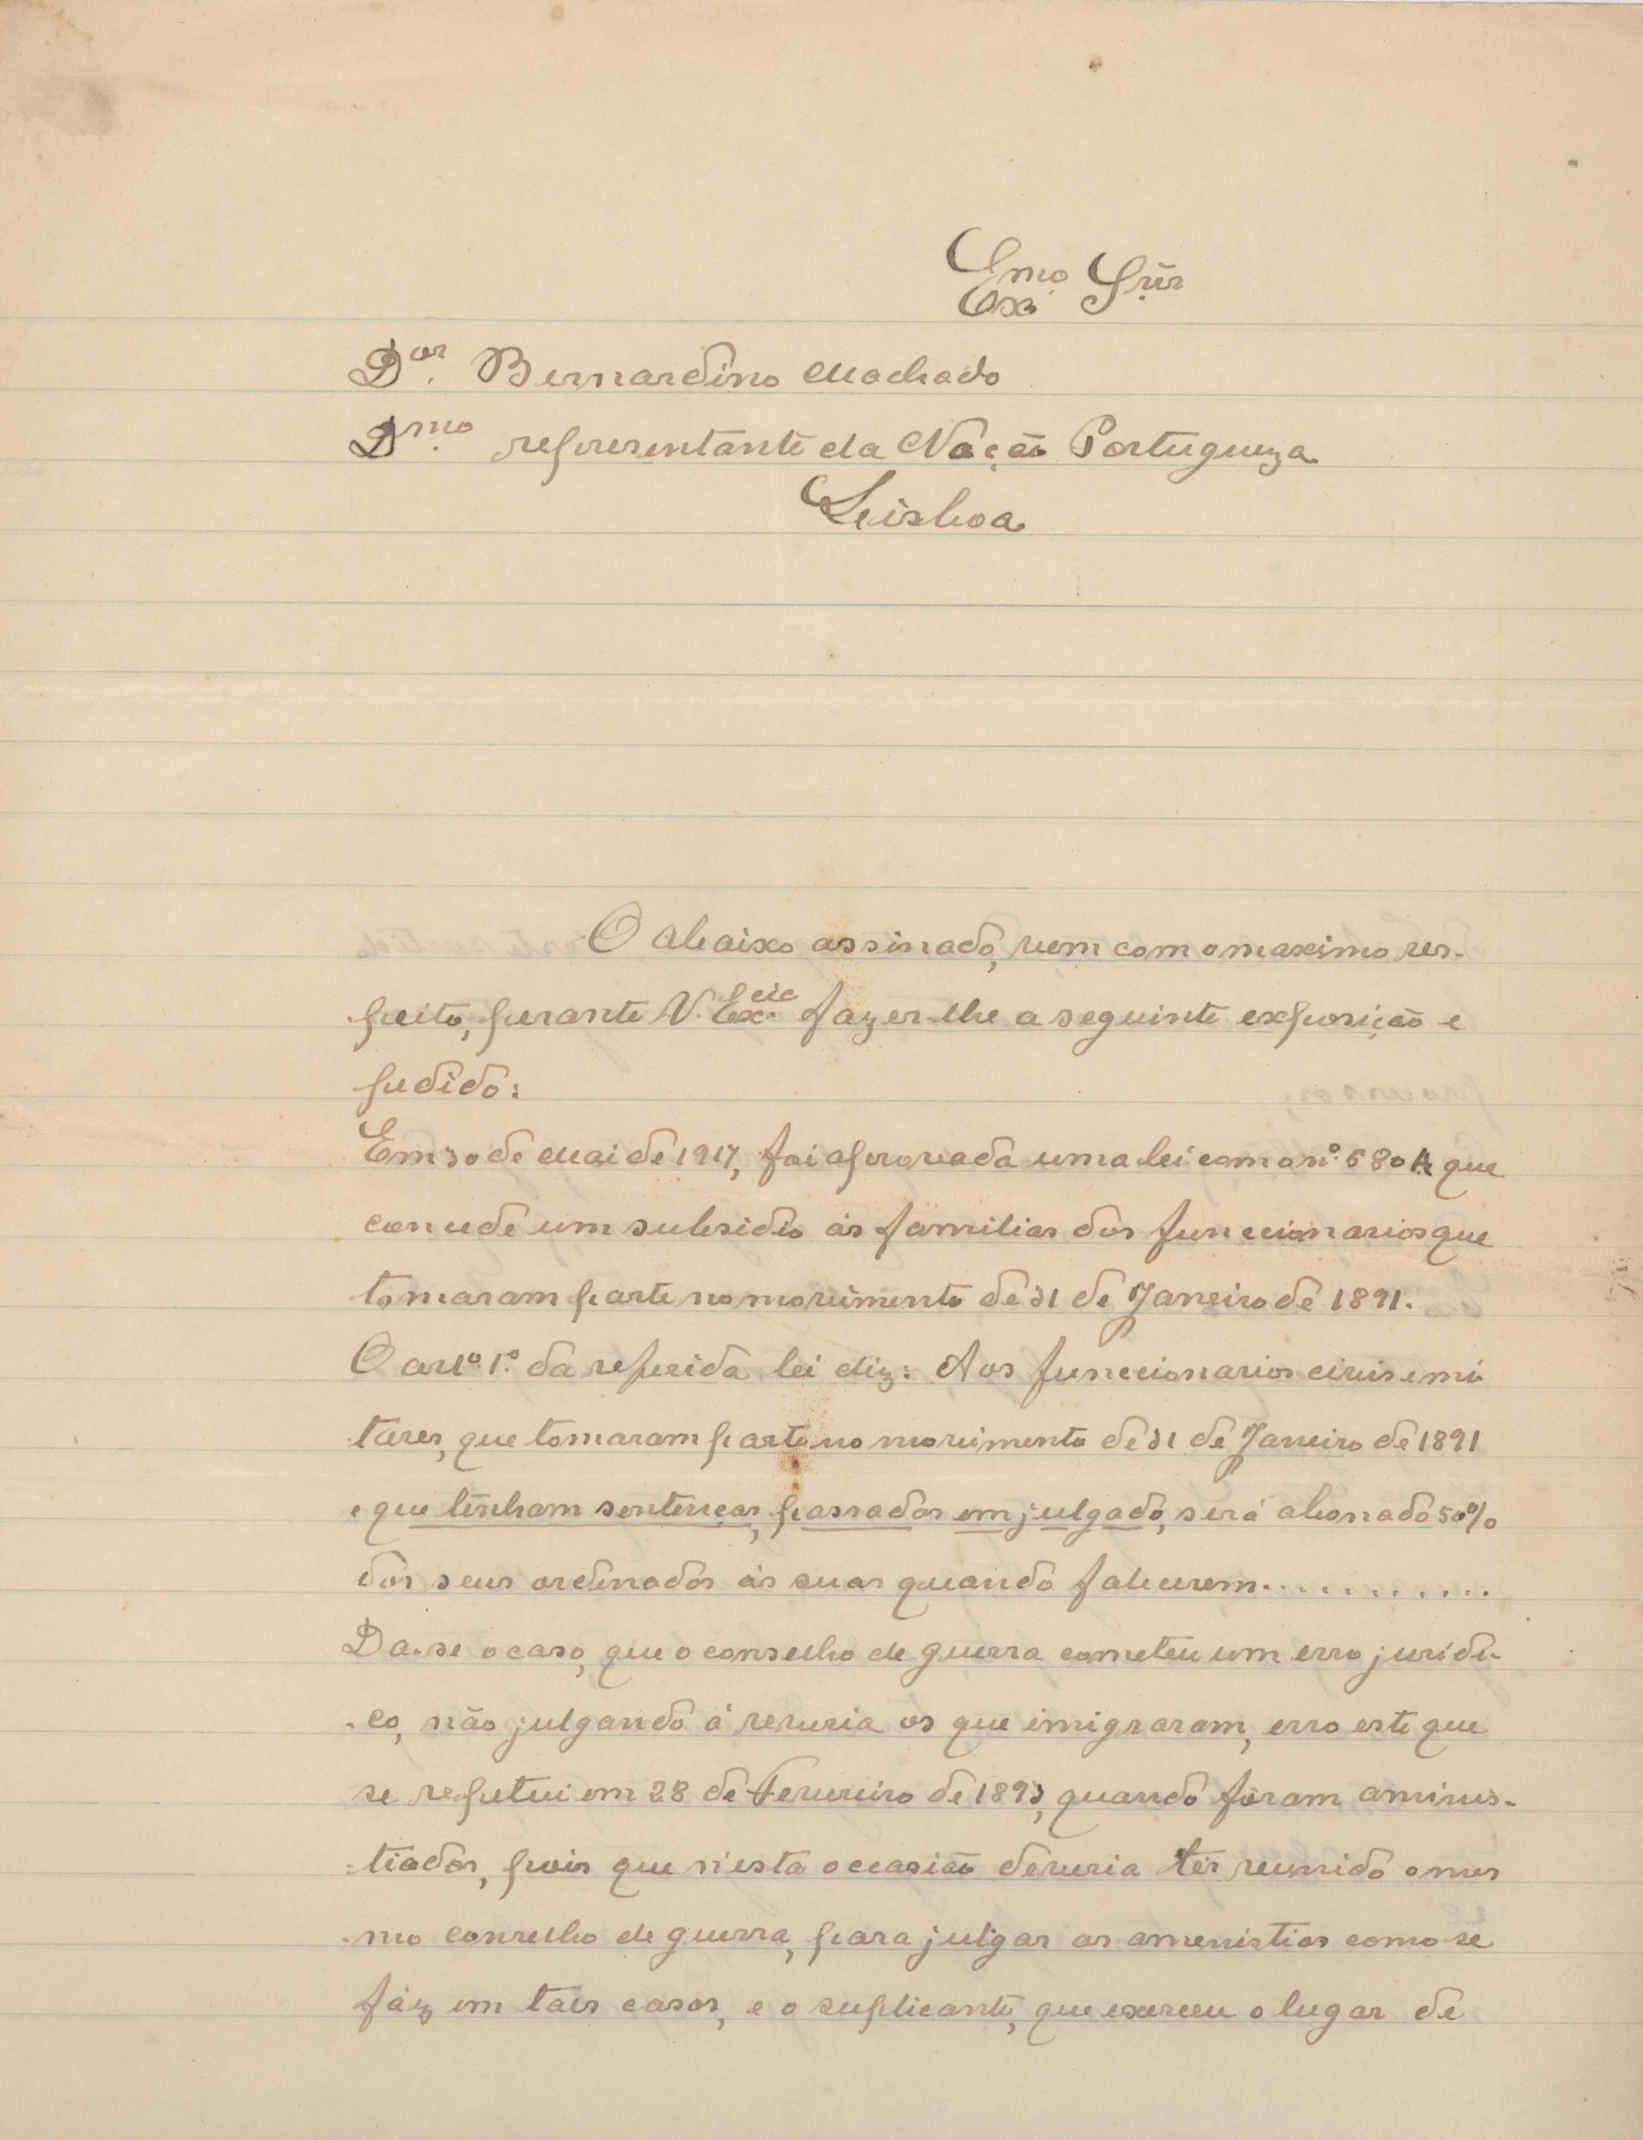 Exmo. Snr.
Dor. Bernardino Machado
Dmo. representante da Nação Portugueza
Lisboa
O abaixo assinado, vem com o maximo res-
peito, perante V. Excia. fazer-lhe a seguinte exposição e
pedido:
Em 30 de Mai de 1917, foi aprovada uma lei com o nº. 580 A que
concede um subsidio ás familias dos funccionarios que
tomaram parte no movimento de 31 de Janeiro de 1891.
O artº. 1º. da referida lei diz: Aos funccionarios civis e mi-
tares, que tomaram parte no movimento de 31 de Janeiro de 1891
e que tenham sentenças, passadas em julgado, será abonado 50%
dos seus ordinados ás suas quando falecerem............
Da-se o caso, que o conselho de guerra cometeu um erro juridi-
co, não julgando á reveria os que imigraram, erro este que
se repetui em 28 de Fevereiro de 1893, quando foram aminis-
tiados, pois que n'esta occasião deveria ter reunido o mes
mo conselho de guerra, para julgar os amenistios como se
faz em tais casos, e o suplicante, que exerceu o lugar de